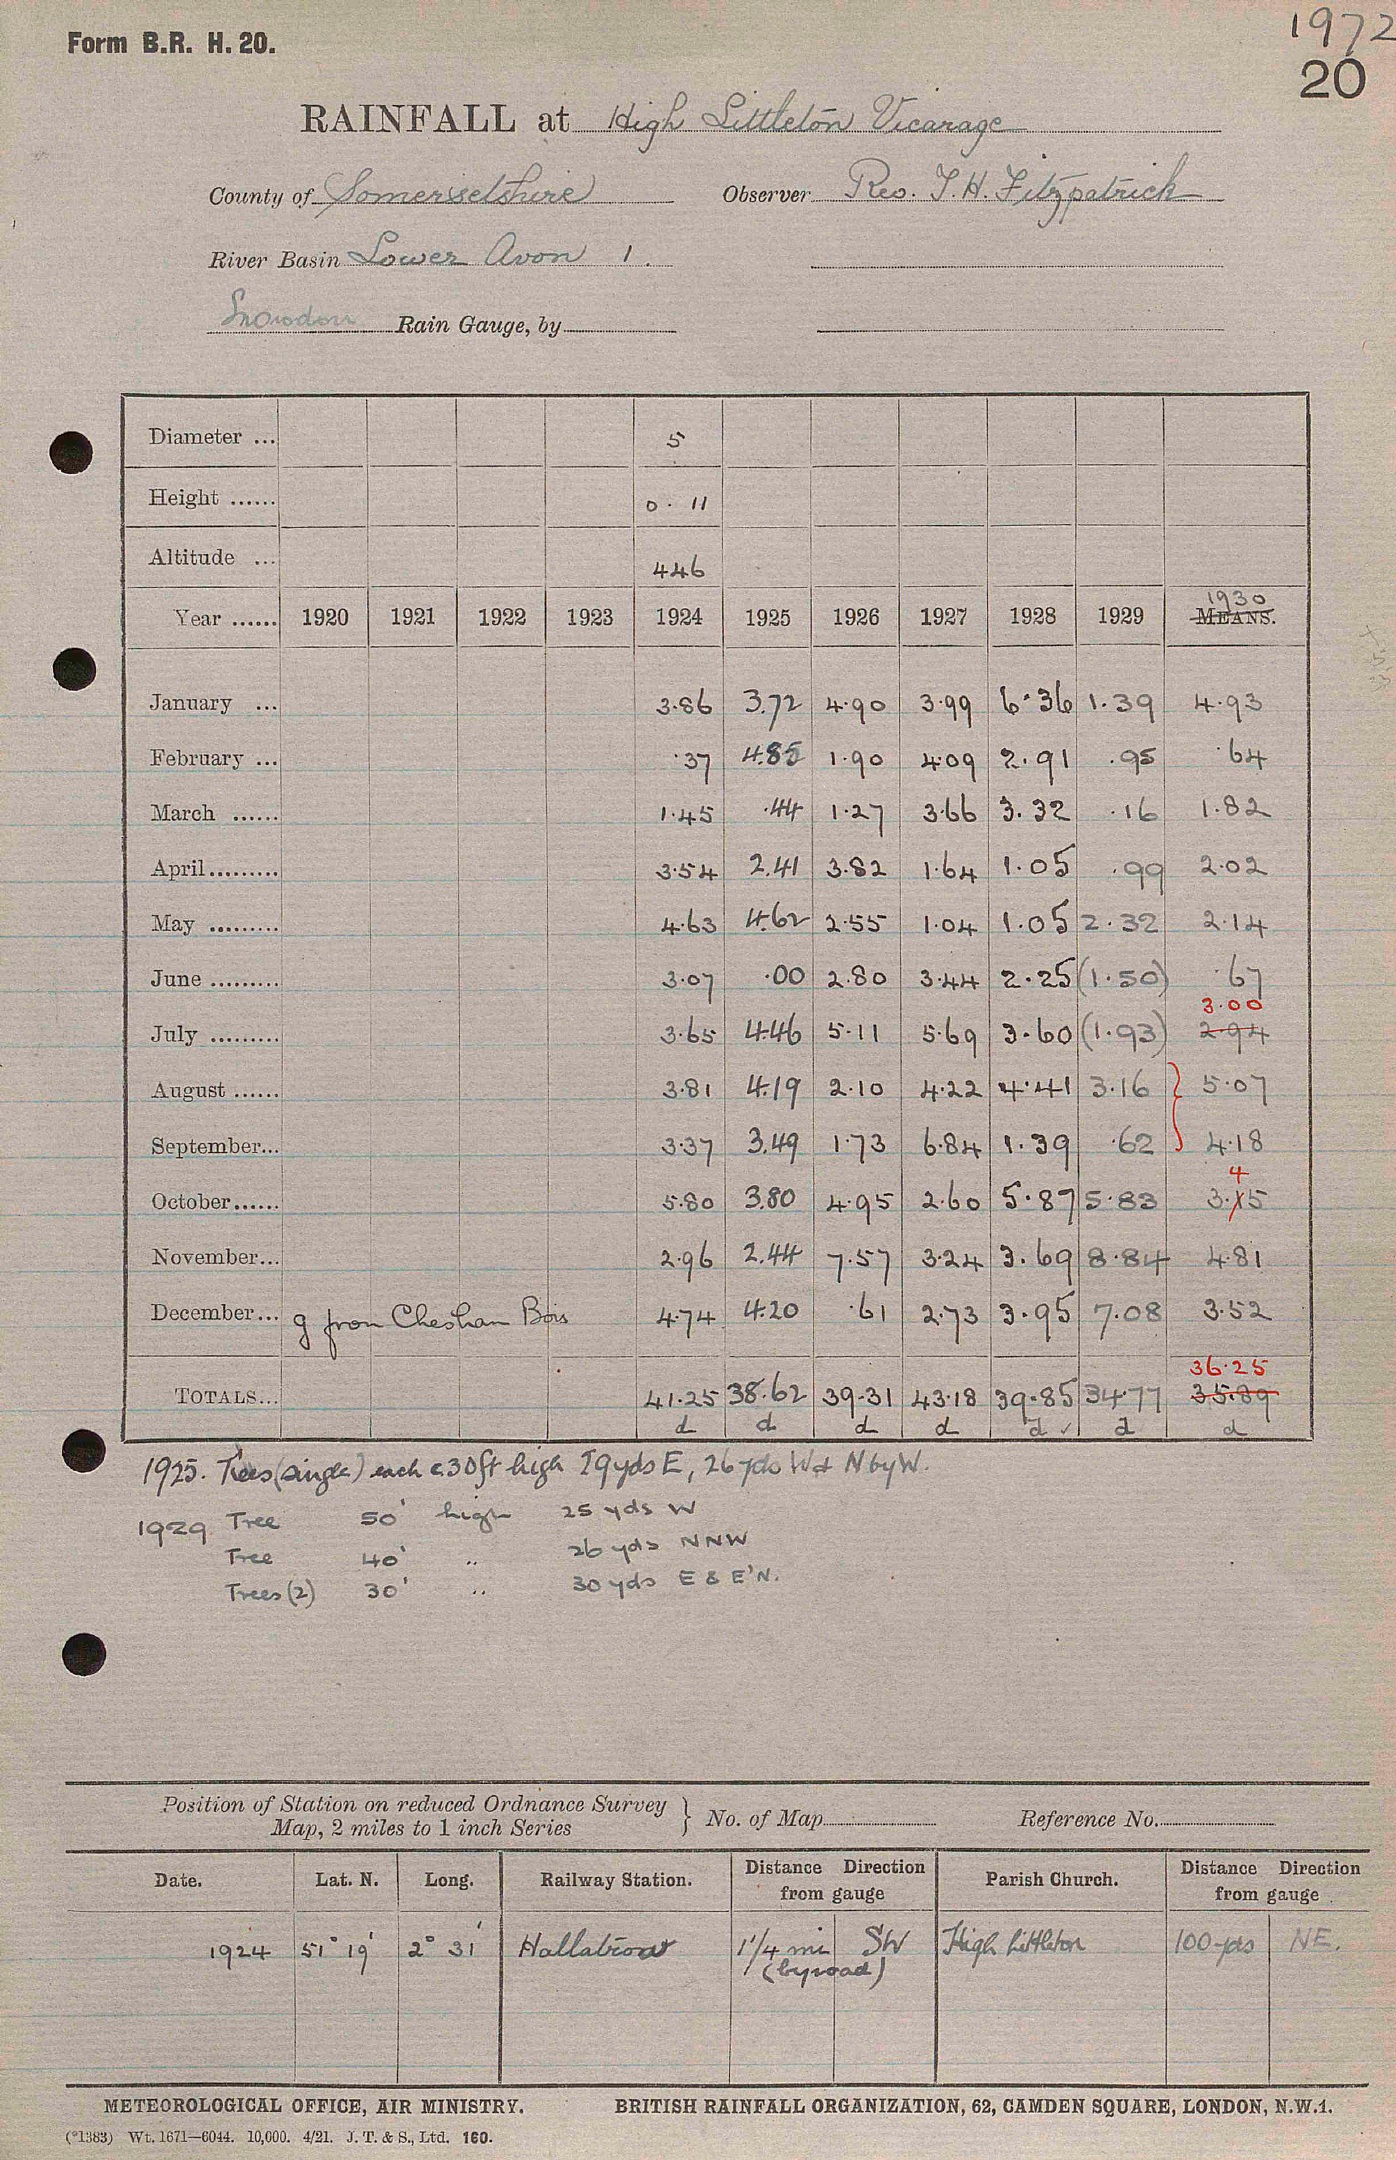 1972
Form B.R. H. 20.
20
RAINFALL at High Littleton Vicarage
County of Somersetshire Observer Rev. T. H. Fitzpatrick
River Basin Lower Avon 1.
Snowdon Rain Gauge, by
Diameter ... 5
Height ...... 0 · 11
Altitude ... 446
1930
Year ...... 1920 1921 1922 1923 1924 1925 1926 1927 1928 1929 MEANS.
January ... 3.86 3.72 4.90 3.99 6.36 1.39 4.93
February ... .37 4.85 1.90 4.09 2.91 .95 .64
March ...... 1.45 .44 1.27 3.66 3.32 .16 1.82
April......... 3.54 2.41 3.82 1.64 1.05 .99 2.02
May ......... 4.63 4.62 2.55 1.04 1.05 2.32 2.14
June ......... 3.07 .00 2.80 3.44 2.25 (1.50) .67
3.00
July ......... 3.65 4.46 5.11 5.69 3.60 (1.93) 2.94
August ...... 3.81 4.19 2.10 4.22 4.41 3.16 } 5.07
September... 3.37 3.49 1.73 6.84 1.39 .62 4.18
4
October...... 5.80 3.80 4.95 2.60 5.87 5.83 3.15
November... 2.96 2.44 7.57 3.24 3.69 8.84 4.81
December... g from Chesham Bois 4.74 4.20 .61 2.73 3.95 7.08 3.52
36.25
TOTALS... 41.25 38.62 39.31 43.18 39.85 34.77 35.89
d d d d d ✓ d d
1925. Trees (single) each c 30 ft high 29 yds E, 26 yds W & N by W.
1929 Tree 50' high 25 yds W
Tree 40' " 26 yds NNW
Trees (2) 30' " 30 yds E & E'N.
Position of Station on reduced Ordnance Survey
Map, 2 miles to 1 inch Series } No. of Map Reference No.
Date. Lat. N. Long. Railway Station. Distance Direction from gauge Parish Church. Distance Direction from gauge
1924 51° 19' 2° 31' Hallatrow 1 1/4 mi SW High Littleton 100 yds NE.
(by road)
METEOROLOGICAL OFFICE, AIR MINISTRY. BRITISH RAINFALL ORGANIZATION, 62, CAMDEN SQUARE, LONDON, N.W.1.
(*1383) Wt. 1671—6044. 10,000. 4/21. J. T. & S., Ltd. 160.